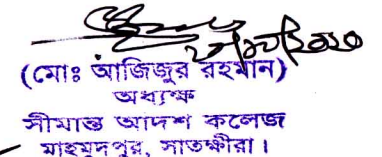 ২০/১০/২০২০
(মোঃ আজিজুর রহমান)
অধ্যক্ষ
সীমান্ত আদর্শ কলেজ
মাহমুদপুর, সাতক্ষীরা।